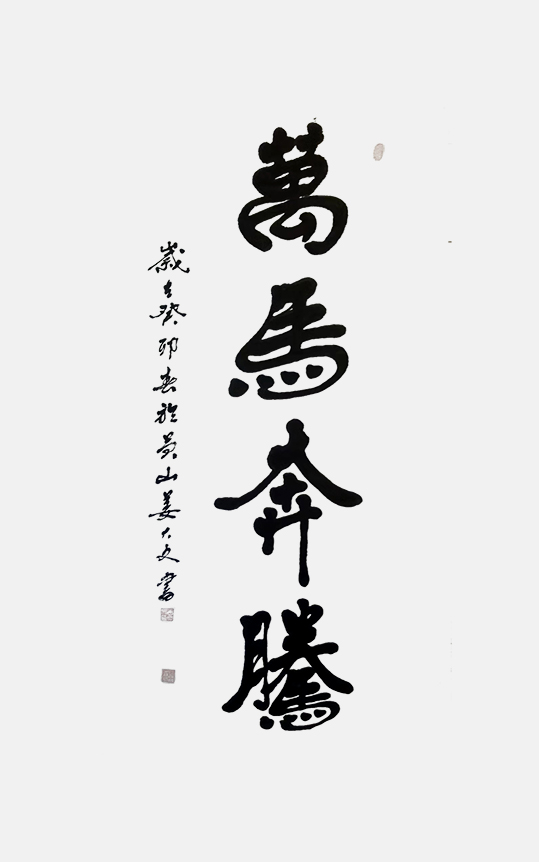 萬馬奔騰
歲在癸卯春於黃山姜大文書